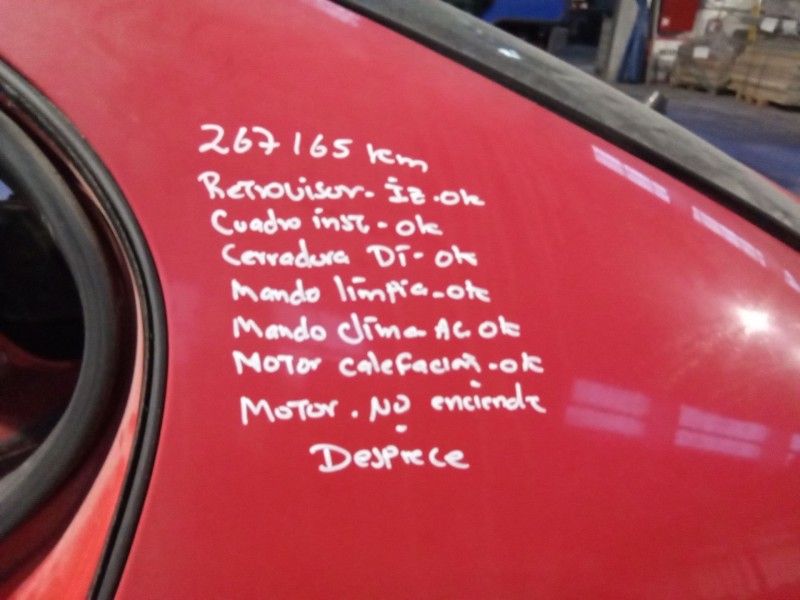 267165 km
Retrovisor - Iz - ok
Cuadro inst - ok
Cerradura DI - ok
Mando limpia - ok
Mando clima AC ok
Motor calefacion - ok
Motor . NO enciende
Desprece